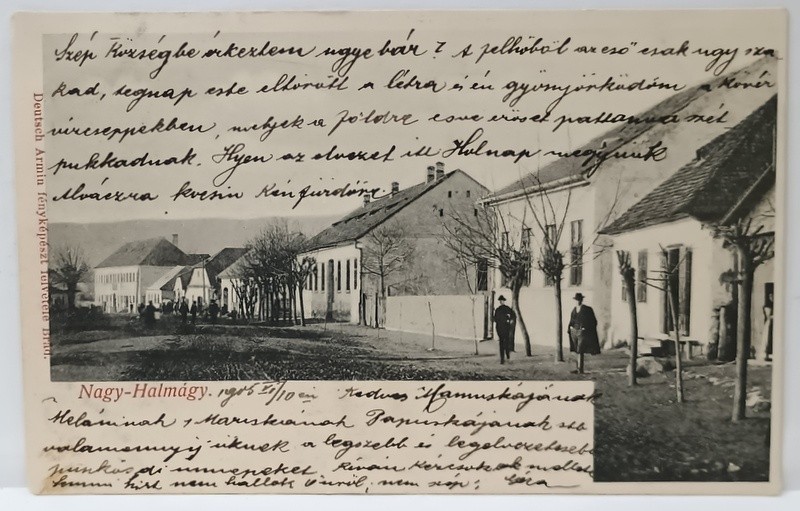 Szép Községbe érkeztem ugye bár? A felhőből az eső csak ugy sza
kad, tegnap este eltörött a létra és én gyönyörködöm a kövér
vízcseppekben, melyek a földre esve erőset pattanva szét
pukkadnak. Ilyen az élvezet itt Holnap megyünk
Alváczra kocsin Kénfürdőre.
Deutsch Ármin fényképészt felvétele Brád.
Nagy-Halmágy. 1905 VI/10 én
Kedves Mamuskájának
Meláninak, Mariskának Papuskájának s
valamennyijüknek a legszebb és legélvezetesebb
pünkösdi ünnepeket kíván Kérisok
hirt nem hallok Önről, nem szép: Géza